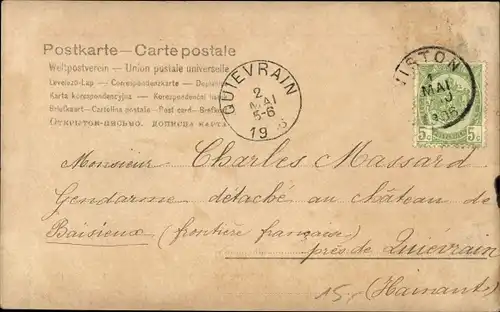 Postkarte — Carte postale
Weltpostverein — Union postale universelle
Levelező-Lap — Correspondenzkarte —
Karta korespondencyjna — Korespondenční
Briefkaart — Cartolina postale — Post card —
Открытое письмо.
QUIEVRAIN
2
MAI
5-6
19
VIRTON
1
MAI
5c 5c
Monsieur Charles Massard
Gendarme détaché au château de
Baisieux (frontière française)
près de Quiévrain
15. (Hainaut)